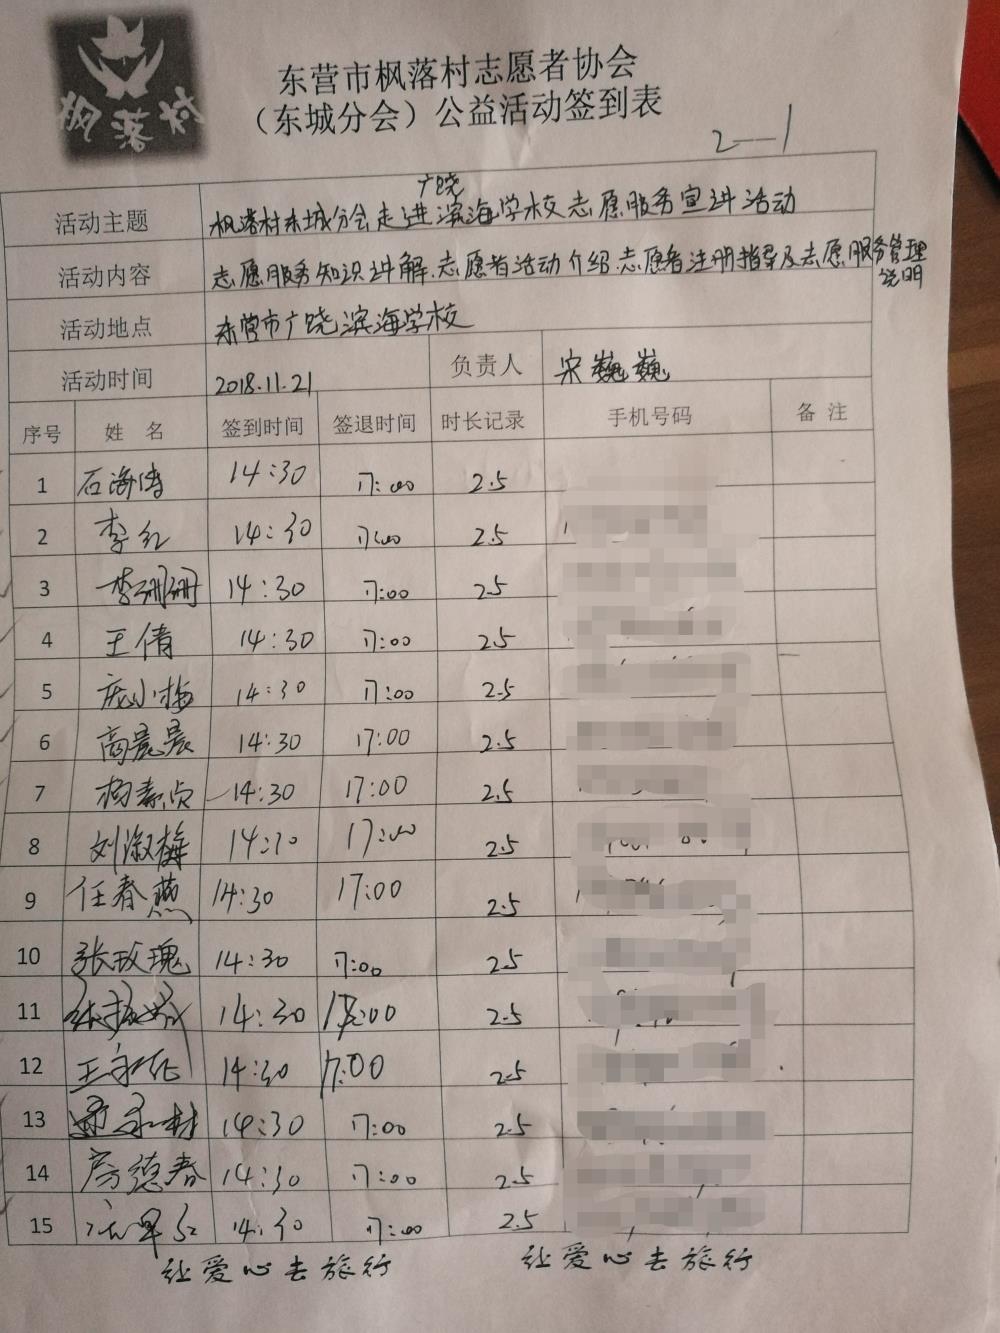 枫落村
东营市枫落村志愿者协会
（东城分会）公益活动签到表
2—1
活动主题 枫落村东城分会走进广饶滨海学校志愿服务宣讲活动
活动内容 志愿服务知识讲解.志愿者活动介绍.志愿者注册指导及志愿服务管理
说明
活动地点 东营市广饶滨海学校
活动时间 2018.11.21 负责人 宋巍巍
序号 姓 名 签到时间 签退时间 时长记录 手机号码 备 注
1 石海涛 14:30 17:00 2.5
2 李红 14:30 17:00 2.5
3 李珊珊 14:30 17:00 2.5
4 王倩 14:30 17:00 2.5
5 庞小梅 14:30 17:00 2.5
6 高晨晨 14:30 17:00 2.5
7 杨素贞 14:30 17:00 2.5
8 刘淑梅 14:30 17:00 2.5
9 任春燕 14:30 17:00 2.5
10 张玫瑰 14:30 17:00 2.5
11 14:30 17:00 2.5
12 14:30 17:00 2.5
13 14:30 17:00 2.5
14 房德春 14:30 17:00 2.5
15 14:30 17:00 2.5
让爱心去旅行 让爱心去旅行